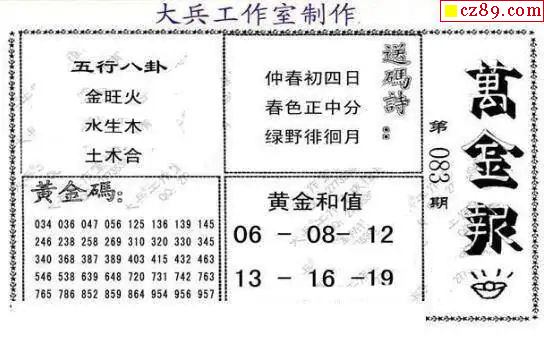 大兵工作室制作
cz89.com
五行八卦
金旺火
水生木
土木合
送碼詩：
仲春初四日
春色正中分
绿野徘徊月
萬金報
第083期
黃金碼：
034 036 047 056 125 136 139 145
246 238 258 269 310 320 330 345
340 368 387 389 403 415 432 463
546 538 639 648 720 731 742 763
765 786 852 859 864 954 956 957
黄金和值
06 - 08- 12
13 - 16 -19